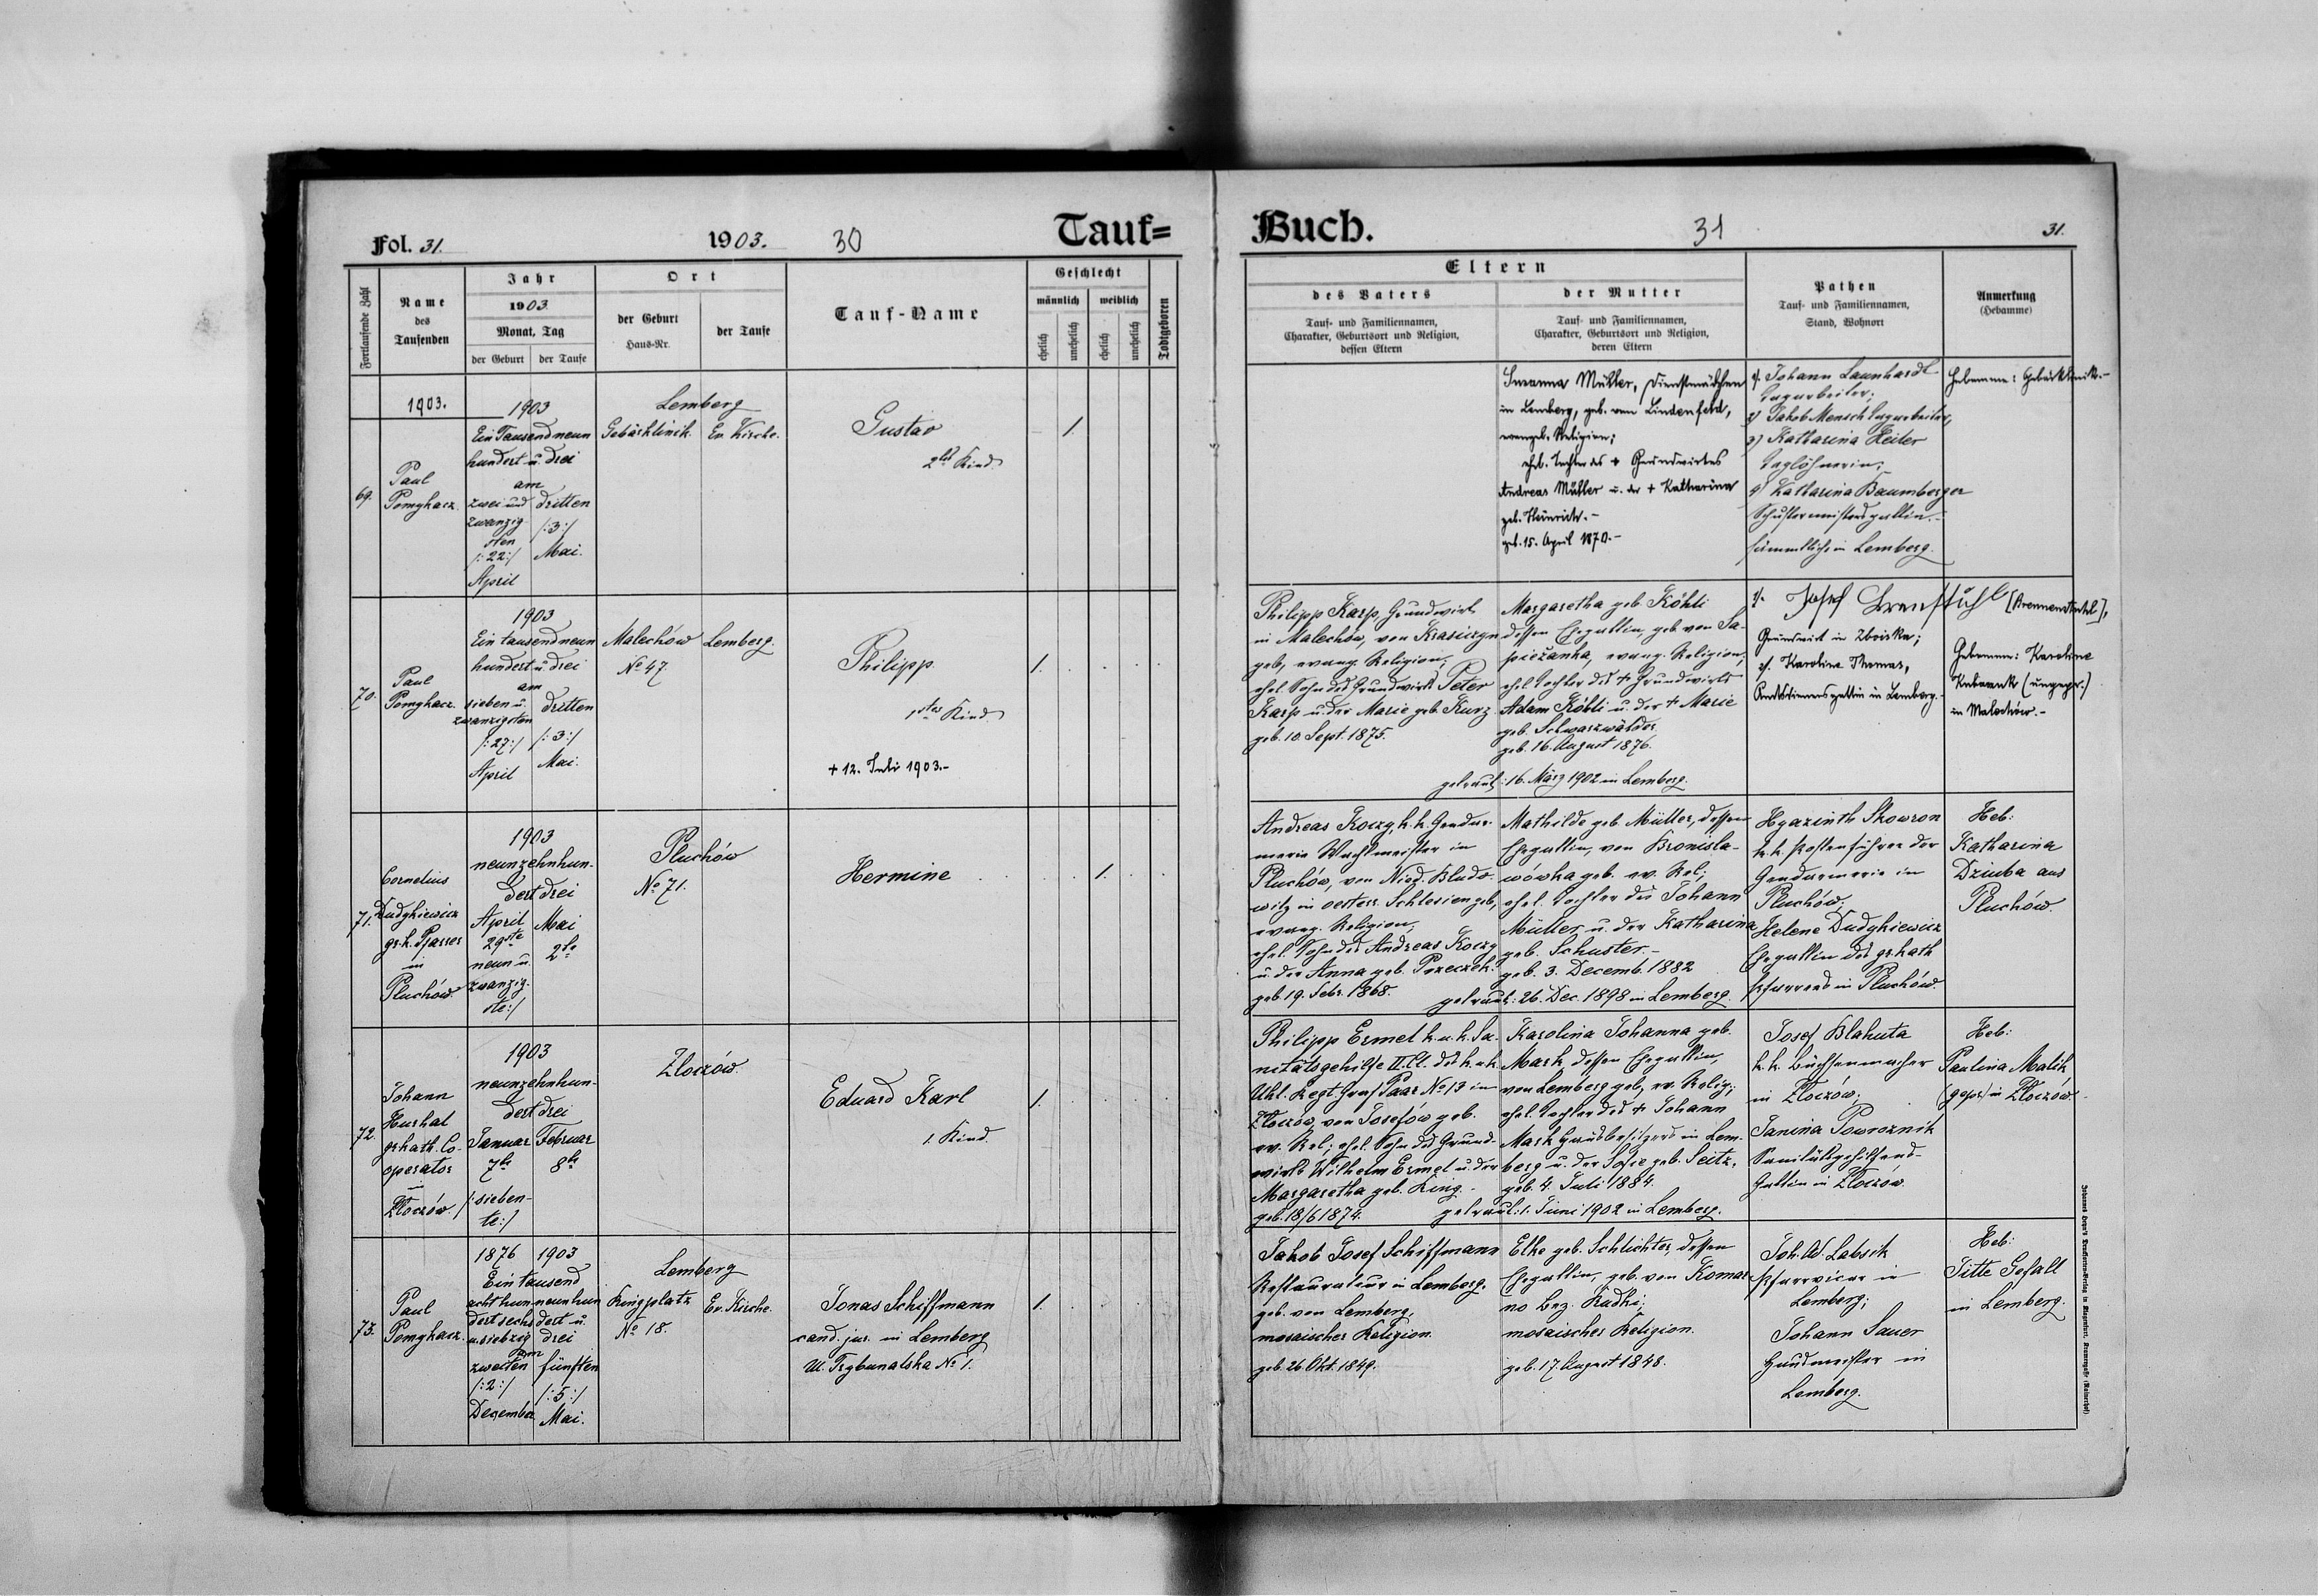 Fol. 31.
1903.
30
Tauf=
Fortlaufende Zahl
Name
des
Taufenden
Jahr
1903
Monat, Tag
der Geburt
der Taufe
Ort
der Geburt
Haus-Nr.
der Taufe
Tauf-Name
Geschlecht
männlich
weiblich
ehelich
unehelich
ehelich
unehelich
Todtgeboren
1903.
69.
Paul
Pomykacz.
1903
Ein Tausend neun
hundert u. drei
am
zwei und dritten
zwanzig
sten
/:3:/
/:22:/
Mai.
April
Lemberg
Gebärklinik.
Ev. Kirche.
Gustav
2tes Kind
1.
70.
Paul
Pomykacz.
1903
Ein tausend neun
hundert u. drei
am
sieben u. dritten
zwanzigsten
/:27:/
/:3:/
April
Mai.
Malechów
No 47
Lemberg.
Philipp.
1stes Kind
+ 12. Juli 1903.-
1.
71.
Cornelius
Dudykiewicz
gr. k. Pfarrer
in
Pluchów.
1903
neunzehnhun-
dert drei
April
Mai
29ste
2te
neun u.
zwanzig-
ste:/
Pluchów
No 71.
Hermine
1.
72.
Johann
Hurhal
gr. kath. Co-
operator
in
Złoczów.
1903
neunzehnhun-
dert drei
Januar
Februar
7te
8te
/:sieben-
te:/
Zloczów.
Eduard Karl
1. Kind.
1.
73.
Paul
Pomykacz.
1876
1903
Ein tausend
acht hun-
neunhun
dert sechs
dert u.
u. siebzig
drei
am
zweiten
fünften
/:2:/
/:5:/
Dezember
Mai.
Lemberg
Ringplatz
No 18.
Ev. Kirche.
Jonas Schiffmann
cand. jur. in Lemberg
Ul. Trybunalska No 1.
1.
Buch.
31
31.
Eltern
des Vaters
Tauf- und Familiennamen,
Charakter, Geburtsort und Religion,
dessen Eltern
der Mutter
Tauf- und Familiennamen,
Charakter, Geburtsort und Religion,
deren Eltern
Pathen
Tauf- und Familiennamen,
Stand, Wohnort
Anmerkung
(Hebamme)
Susanna Müller, Dienstmädchen
in Lemberg, geb. von Lindenfeld,
evangel. Religion;
ehel. Tochter des + Grundwirtes
Andreas Müller u. der + Katharina
geb. Heinrich.-
geb. 15. April 1870.-
1. Johann Launhardt
Tagarbeiter;
2) Jakob Mensch Tagarbeiter,
3) Katharina Reiter
Taglöhnerin;
4) Katharina Baumberger
Schustermeistersgattin.-
sämmtliche in Lemberg.
Hebamme: Gebärklinik.-
Philipp Karp, Grundwirt
in Malechów, von Krasiczyn
geb., evang. Religion;
ehel. Sohn des Grundwirts Peter
Karp u. der Marie geb. Kurz.
geb. 10. Sept. 1875.
Margaretha geb. Köhli
dessen Ehegattin, geb. von Sa-
pieżanka, evang. Religion;
ehel. Tochter des + Grundwirts
Adam Köhli u. der + Marie
geb. Schwarzwälder
geb. 16. August 1876.
getraut: 16. März 1902 in Lemberg.
1. Josef Brenstuhl [Brennenstuhl],
Grundwirt in Zboiska;
2. Karoline Thomas,
Amtsdienersgattin in Lemberg.
Hebamme: Karoline
(ungepr.)
in Malechów.-
Andreas Koczy, k. k. Gendar-
merie Wachtmeister in
Pluchów, von Nied. Bludo-
witz in oesterr. Schlesien geb.,
evang. Religion,
ehel. Sohn des Andreas Koczy
u. der Anna geb.
geb. 19. Febr. 1868.
Mathilde geb. Müller, dessen
Ehegattin, von Bronisła-
wówka geb. ev. Rel;
ehel. Tochter des Johann
Müller u. der Katharina
geb. Schuster.-
geb. 3. Decemb. 1882
getraut: 26. Dec. 1898 in Lemberg.
Hyazinth Skowron
k. k. Postenführer der
Gendarmerie in
Pluchów;
Helene Dudykiewicz
Ehegattin des gr. kath
Pfarrers in Pluchów.
Heb:
Katharina
Dziuba aus
Pluchów.
Philipp Ermel k. u. k. Sa-
nitätsgehilfe II. Cl. des k. u. k.
Uhl. Regt Graf Paar No 13 in
Złoczów, von Josefów geb.
ev. Rel., ehel. Sohn des Grund-
wirts Wilhelm Ermel u. der
Margaretha geb. King.-
geb. 18/6 1874.
Karolina Johanna geb.
Mark, dessen Ehegattin,
von Lemberg geb., ev. Relig;
ehel. Tochter des + Johann
Mark Hausbesitzers in Lem-
berg u. der Sofie geb. Seitz.
geb. 4. Juli 1884.
getraut: 1. Juni 1902 in Lemberg.
Josef Blahuta
k. k. Büchsenmacher
in Złoczów;
Janina Powroznik
Sanitätsgehilfens-
Gattin in Złoczów
Heb:
Paulina Malik
(gepr) in Złoczów.
Jakob Josef Schiffmann
Restaurateur in Lemberg.
geb. von Lemberg,
mosaischer Religion.
geb. 26. Okt. 1849.
Elke geb. Schlichter dessen
Ehegattin, geb. von Komar
no Bez. Rudki;
mosaischer Religion.
geb. 17. August 1848.
Joh. W. Labsik
Pfarrvicar in
Lemberg;
Johann Sauer
Hausmeister in
Lemberg.
Heb:
Titte Gefall
in Lemberg.